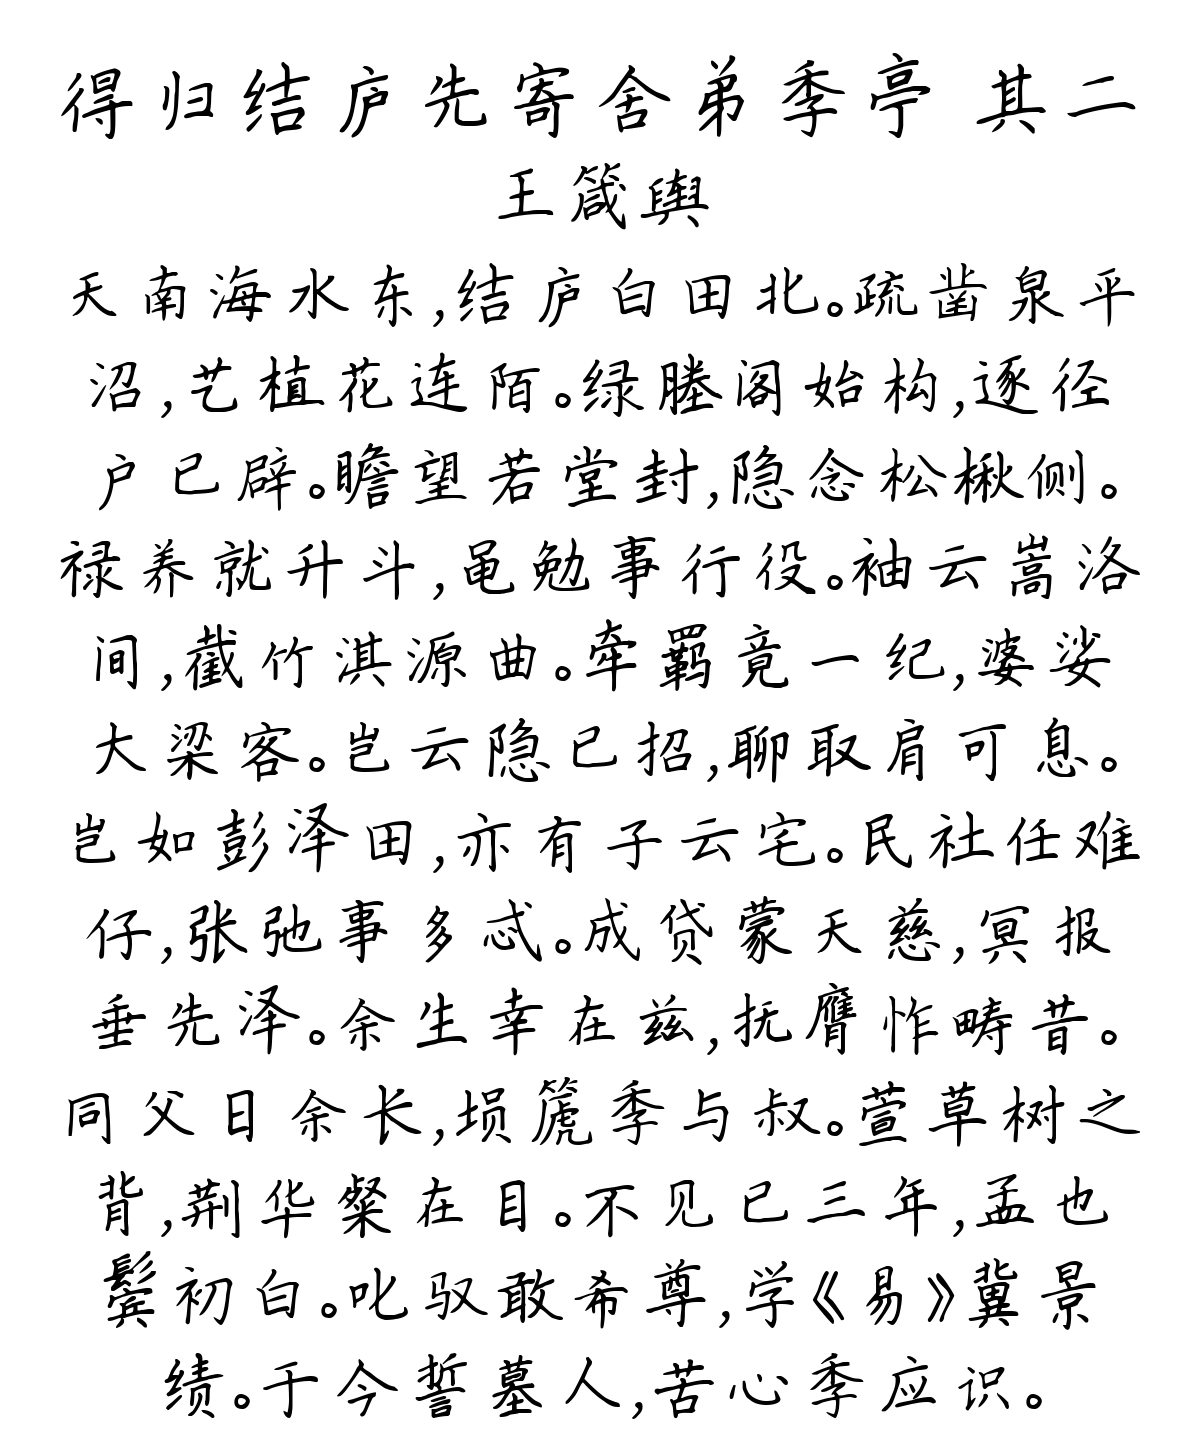 得归结庐先寄舍弟季亭 其二
王箴舆
天南海水东,结庐白田北。疏凿泉平
沼,艺植花连陌。绿塍阁始构,逐径
户已辟。瞻望若堂封,隐念松楸侧。
禄养就升斗,黾勉事行役。袖云嵩洛
间,截竹淇源曲。牵羁竟一纪,婆娑
大梁客。岂云隐已招,聊取肩可息。
岂如彭泽田,亦有子云宅。民社任难
仔,张弛事多忒。成贷蒙天慈,冥报
垂先泽。余生幸在兹,抚膺怍畴昔。
同父日余长,埙篪季与叔。萱草树之
背,荆华粲在目。不见已三年,孟也
鬓初白。叱驭敢希尊,学《易》冀景
绩。于今誓墓人,苦心季应识。